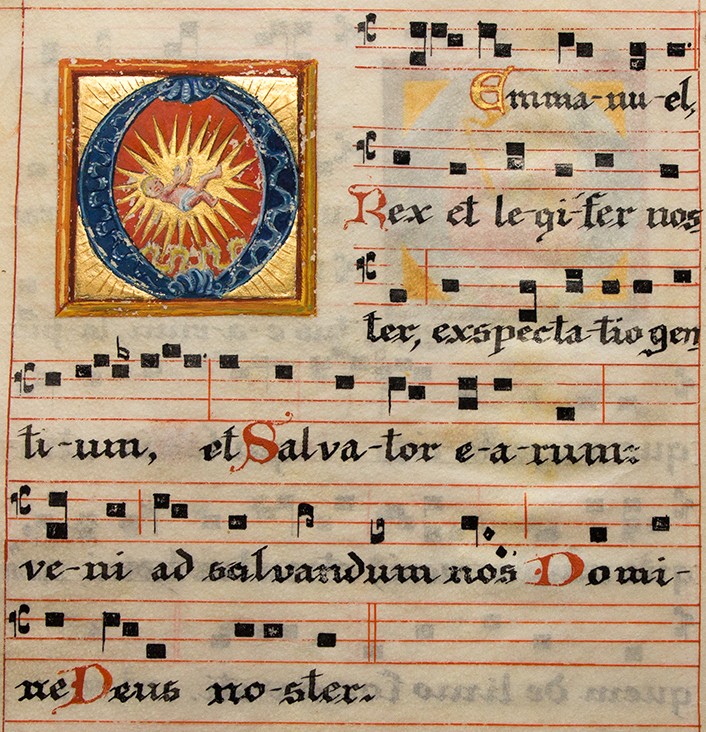 O Emma-nu-el,
Rex et le-gi-fer nos
ter, exspecta-tio gen
ti-um, et Salva-tor e-a-rum:
ve-ni ad salvandum nos Domi-
ne Deus no-ster.